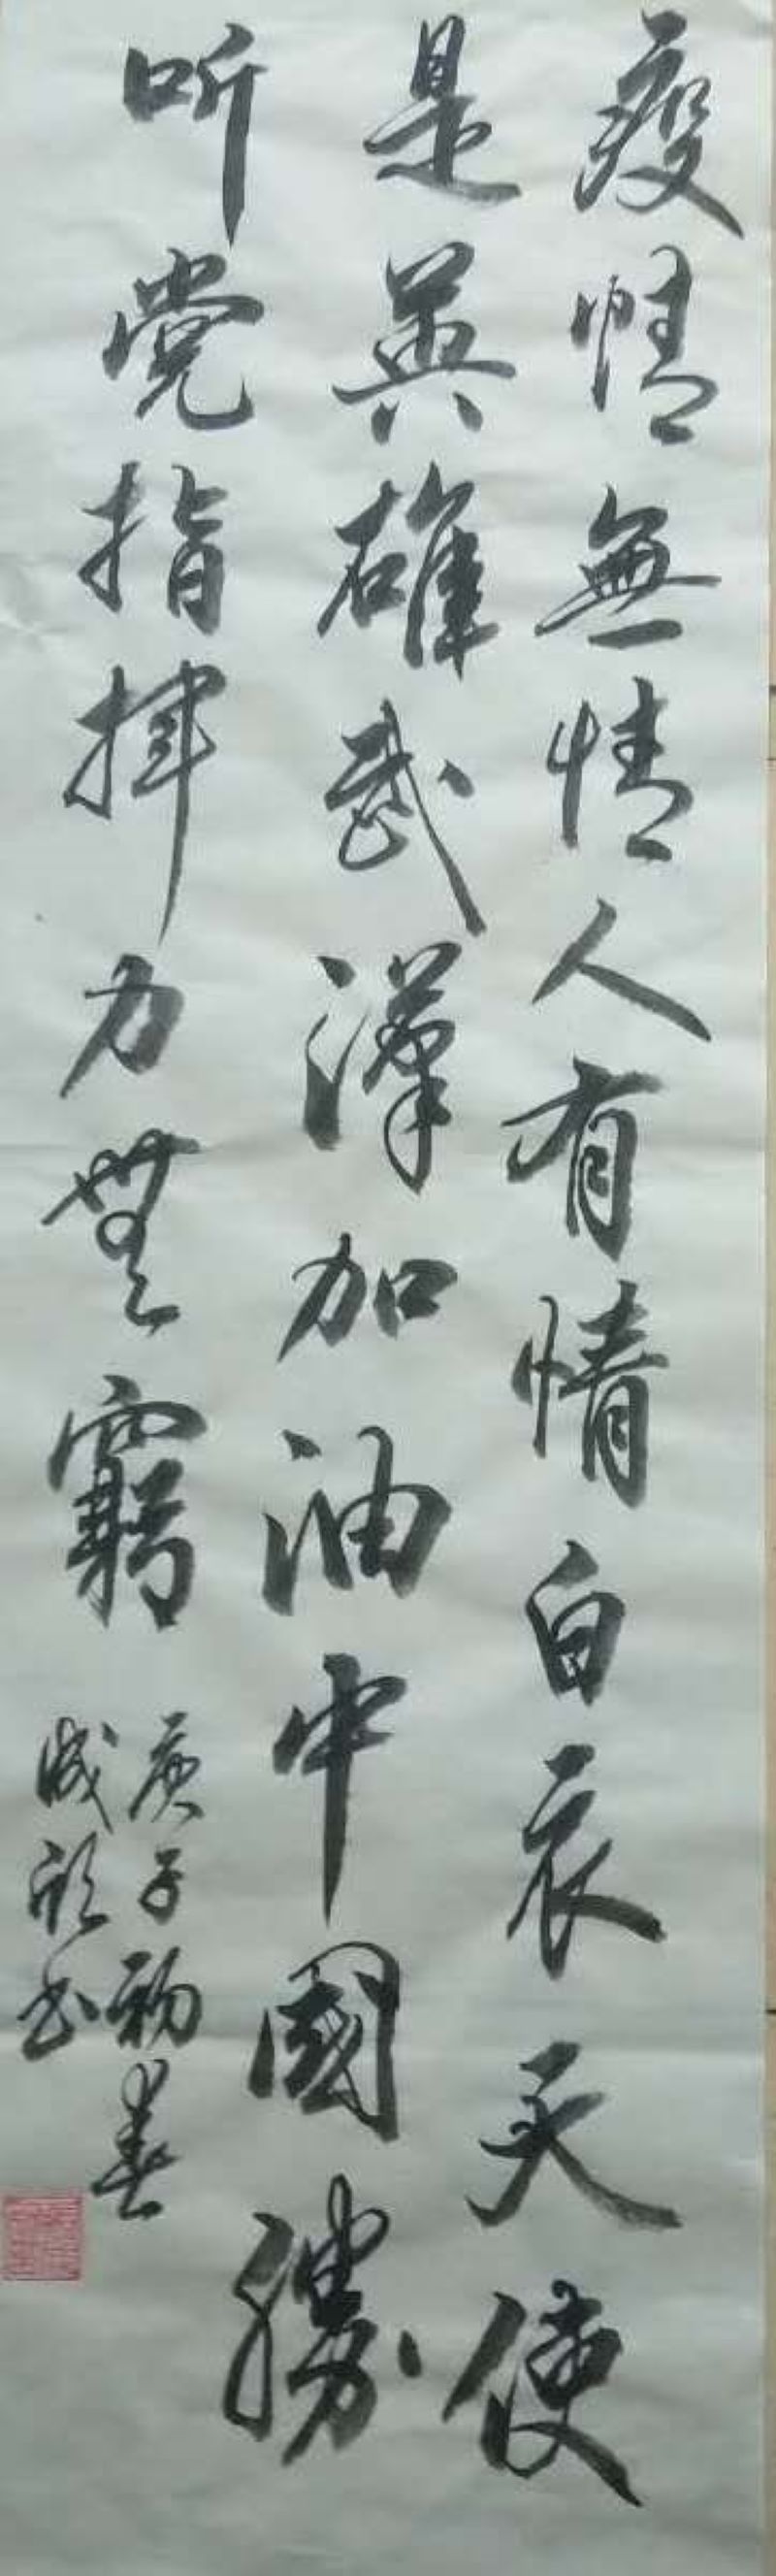 疫情無情人有情白衣天使
是英雄武漢加油中國勝
听党指揮力無窮
庚子初春
成欣书